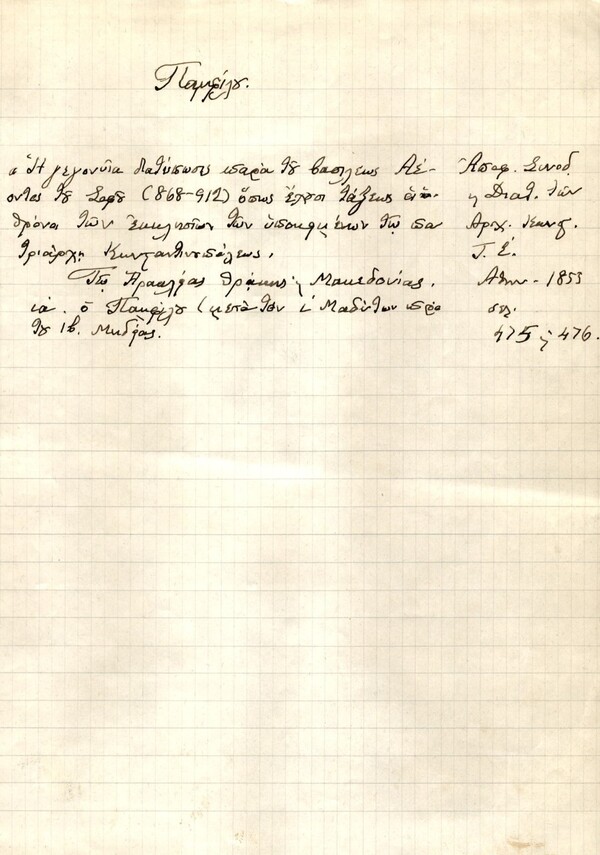 Παμφίλου.
« Ἡ γεγονυῖα διατύπωσις παρὰ τοῦ βασιλέως Λέ-
οντος τοῦ Σοφοῦ (868-912) ὅπως ἔχουσι τάξεως οἱ
θρόνοι τῶν Ἐκκλησιῶν τῶν ὑποκειμένων τῷ πα
τριάρχῃ Κωνσταντινουπόλεως.
Τῷ Ἡρακλείας Θράκης ἢ Μακεδονίας.
ια. ὁ Παμφίλου (μετὰ τὸν ι Μαδύτων πρὸ
τοῦ ιβ. Μηδείας.
Ἀποφ. Συνοδ
ἢ Διατ. τῶν
Ἀρχ. Κωνστ.
Τ. Ε΄.
Ἀθην - 1855
σελ.
475 ἢ 476.